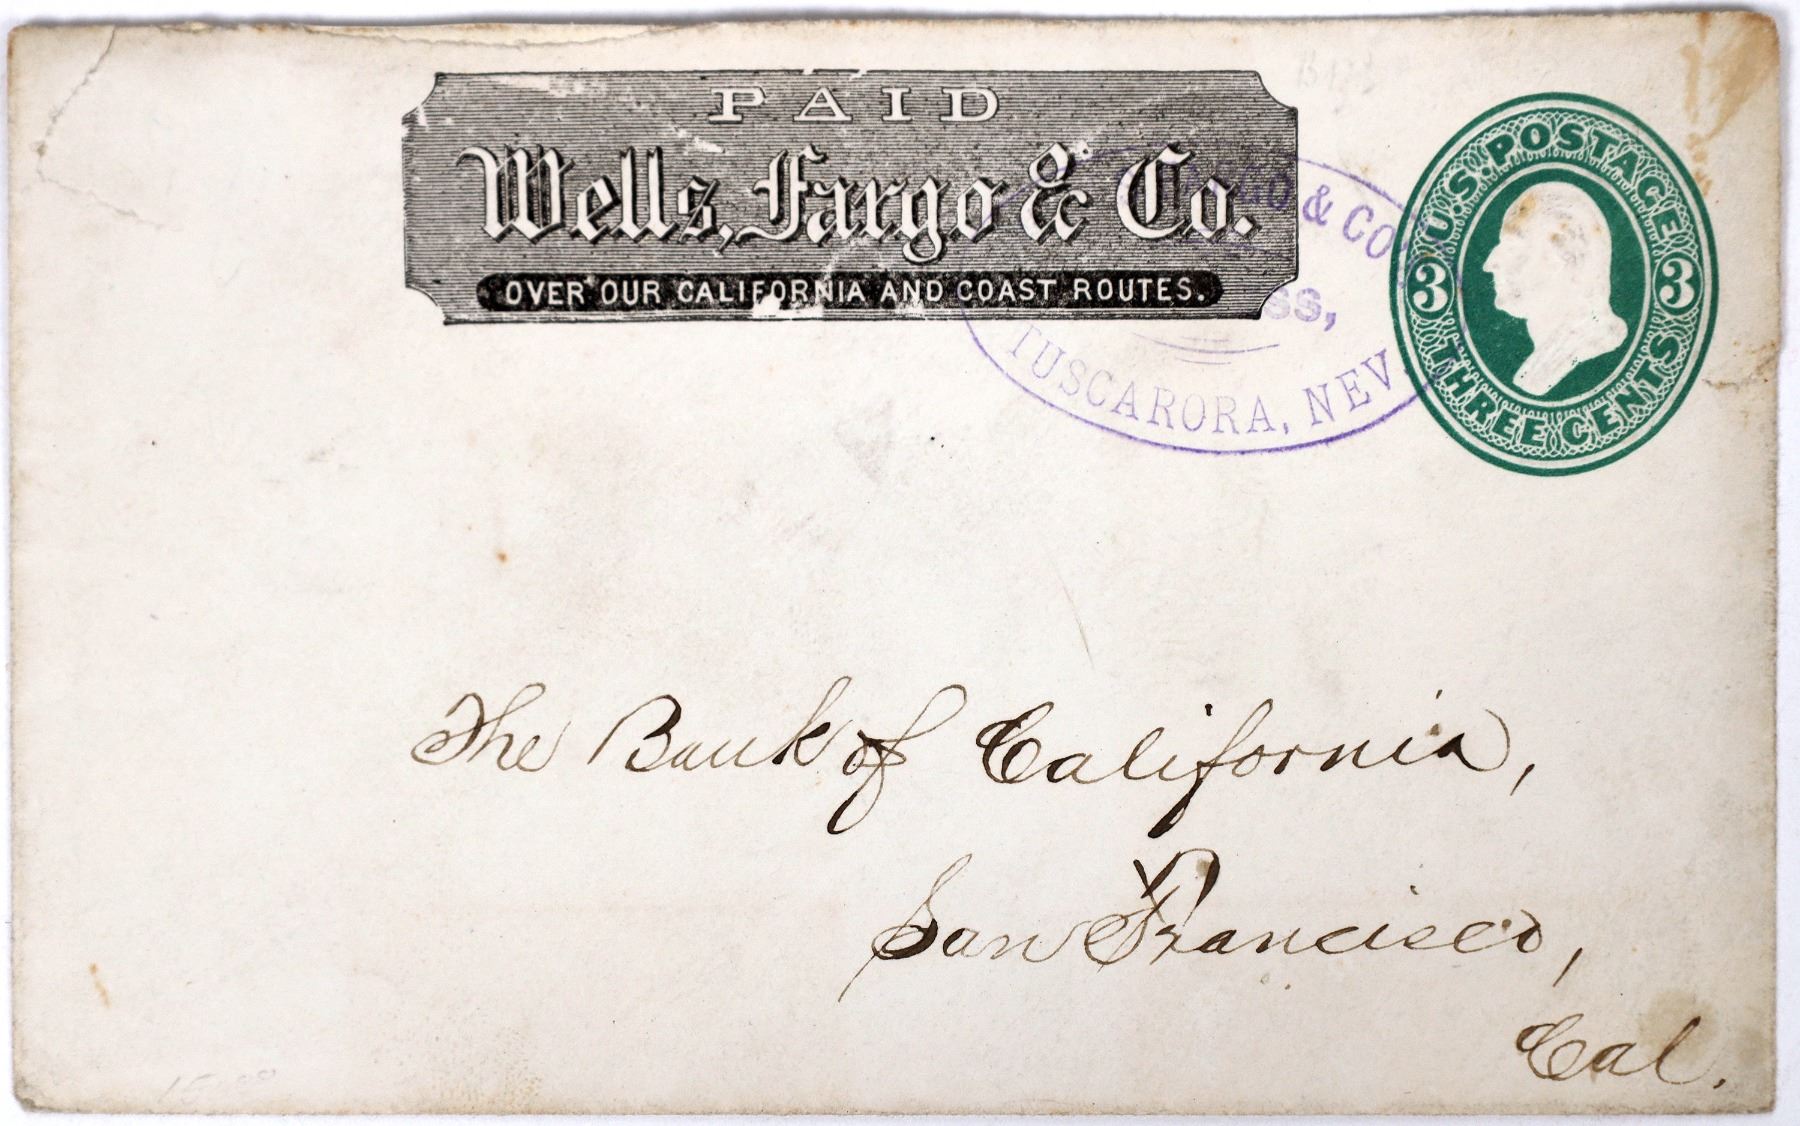 PAID
Wells, Fargo & Co.
OVER OUR CALIFORNIA AND COAST ROUTES.
FARGO & CO'S
TUSCARORA, NEV
U.S. POSTAGE
3 3
THREE CENTS
The Bank of California,
San Francisco,
Cal.
15.00